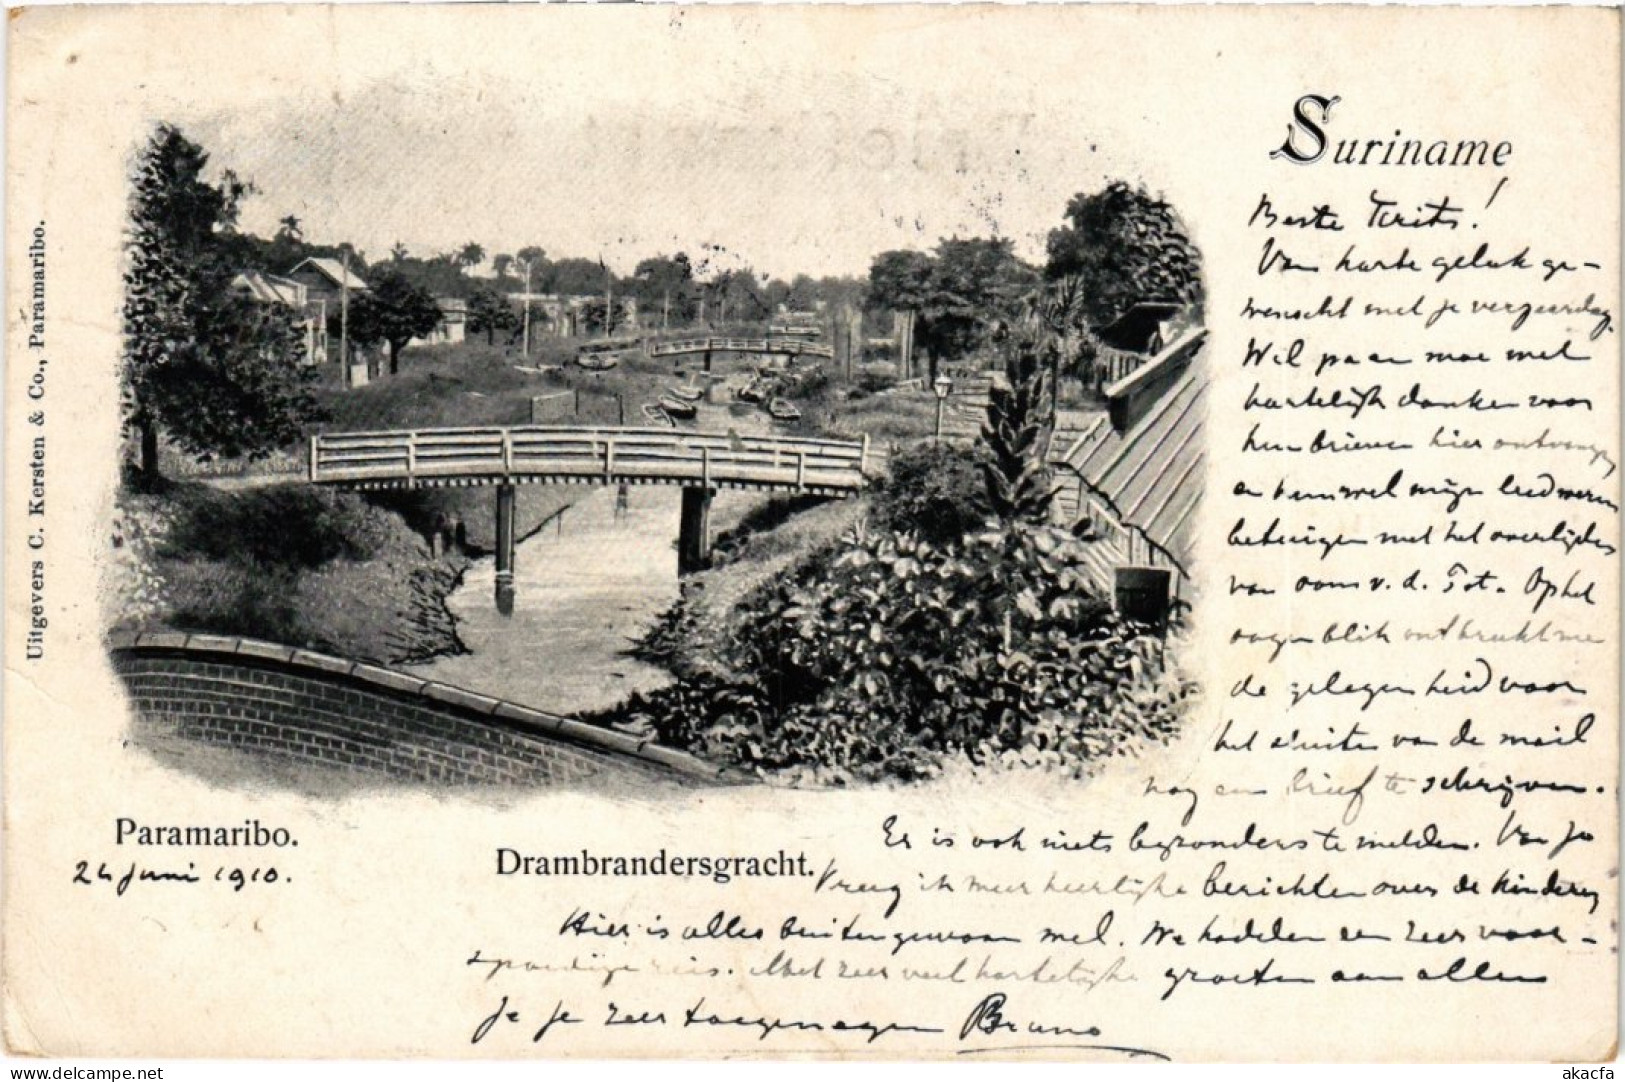 Suriname
Beste Frits!
Van harte geluk ge-
wenscht met je verjaardag.
Wil pa en moe wel
hartelijk danken voor
hun brieven hier ontvangen
en hun wel mijn leedwezen
betuigen met het overlijden
van oom v. d. Tot. Op het
oogenblik ontbreekt me
de gelegenheid voor
het sluiten van de mail
nog een brief te schrijven.
Er is ook niets bijzonders te melden. Van je
kreeg ik meer heerlijke berichten over de kinderen
Hier is alles buitengewoon wel. We hadden een zeer voor-
spoedige reis. Met zeer veel hartelijke groeten aan allen
Je je zeer toegenegen Bruno
Paramaribo.
24 Juni 1910.
Drambrandersgracht.
Uitgevers C. Kersten & Co., Paramaribo.
delcampe.net
akacfa